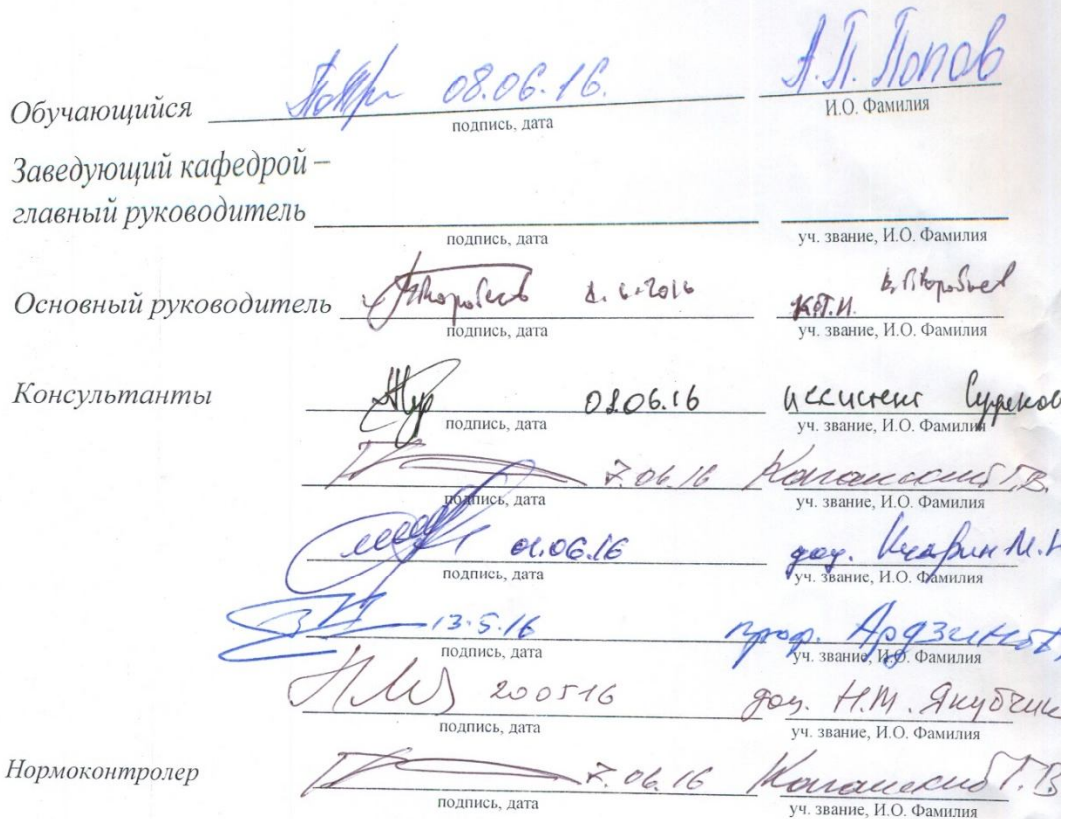 Обучающийся 08.06.16. А.П. Попов
подпись, дата И.О. Фамилия
Заведующий кафедрой –
главный руководитель
подпись, дата уч. звание, И.О. Фамилия
Основный руководитель 6.2016 к.т.н. В.П.Воробьев
подпись, дата уч. звание, И.О. Фамилия
Консультанты 06.16 ассистент
подпись, дата уч. звание, И.О. Фамилия
7.06.16 Т.В.
подпись, дата уч. звание, И.О. Фамилия
06.16 доц.
подпись, дата уч. звание, И.О. Фамилия
13.5.16 проф.
подпись, дата уч. звание, И.О. Фамилия
200516 доц. Н.М. Якубчик
подпись, дата уч. звание, И.О. Фамилия
Нормоконтролер 7.06.16 Т.В
подпись, дата уч. звание, И.О. Фамилия